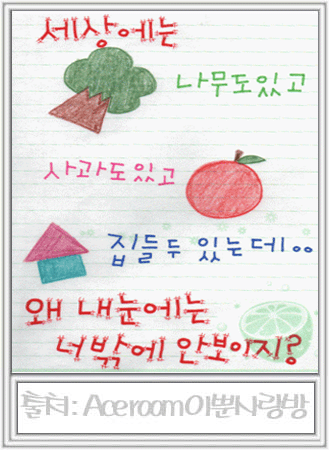 세상에는
나무도있고
사과도있고
집들두 있는데..
왜 내눈에는
너밖에 안보이지?
출처: Aceroom이뿐사랑방